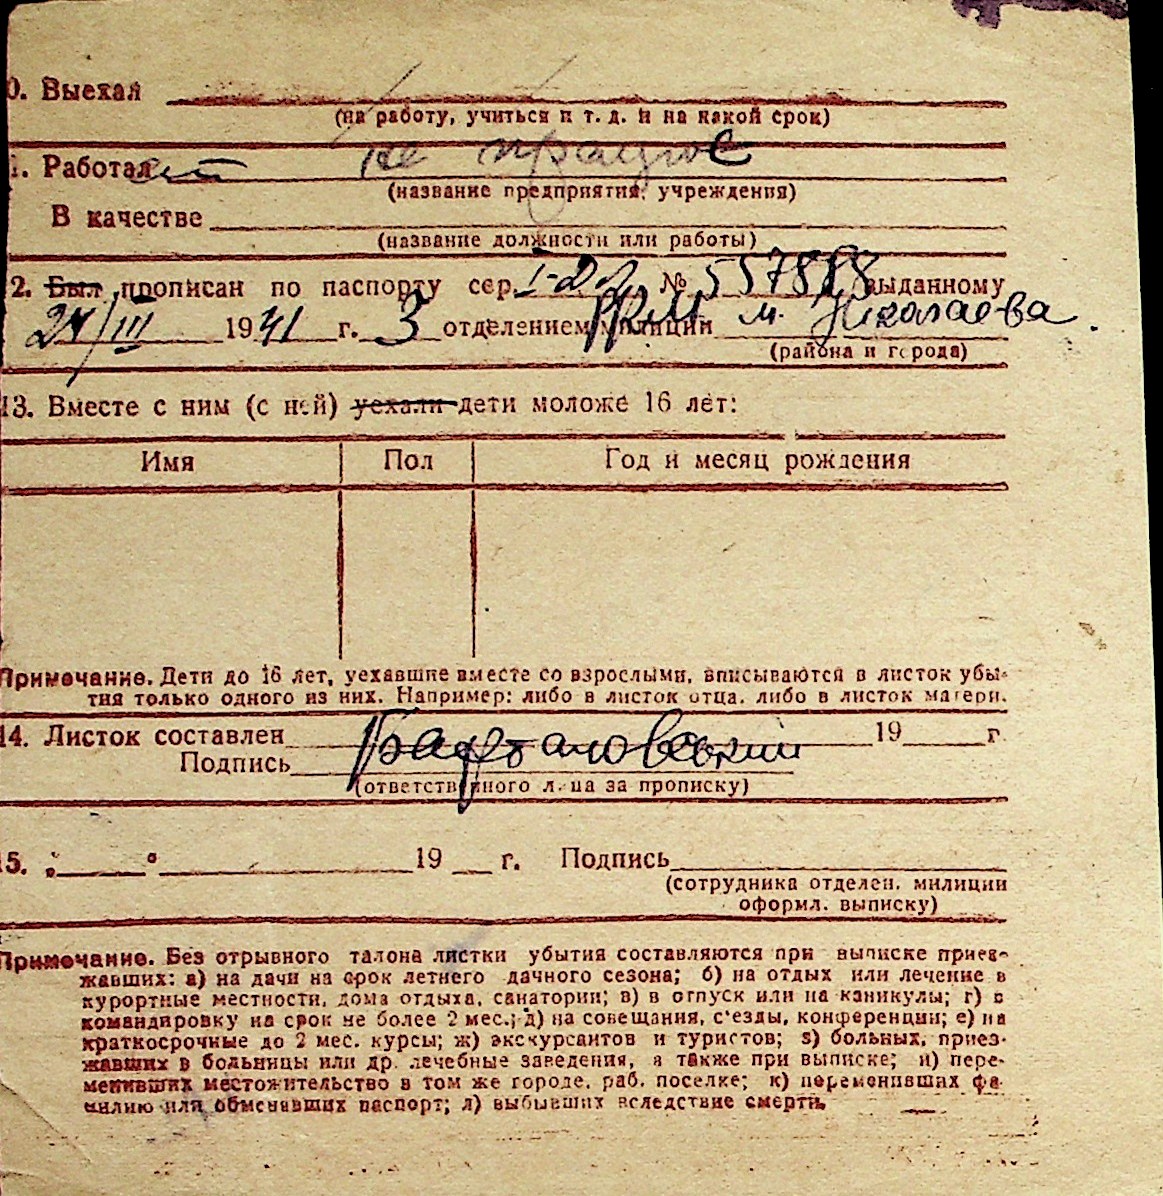 0. Выехал
(на работу, учиться и т. д. и на какой срок)
1. Работает не працює
(название предприятия, учреждения)
В качестве
(название должности или работы)
2. Был прописан по паспорту сер. № 557888 выданному
24/III 1941 г. 3 отделением милиции РКМ м. Николаева.
(района и города)
13. Вместе с ним (с ней) уехали дети моложе 16 лет:
Имя Пол Год и месяц рождения
Примечание. Дети до 16 лет, уехавшие вместе со взрослыми, вписываются в листок убы-
тия только одного из них. Например: либо в листок отца, либо в листок матери.
14. Листок составлен 19 г.
Подпись
(ответственного лица за прописку)
15. „ " 19 г. Подпись
(сотрудника отделен. милиции
оформл. выписку)
Примечание. Без отрывного талона листки убытия составляются при выписке приез-
жавших: а) на дачи на срок летнего дачного сезона; б) на отдых или лечение в
курортные местности, дома отдыха, санатории; в) в отпуск или на каникулы; г) в
командировку на срок не более 2 мес.; д) на совещания, с'езды, конференции; е) на
краткосрочные до 2 мес. курсы; ж) экскурсантов и туристов; з) больных, приез-
жавших в больницы или др. лечебные заведения, а также при выписке; и) пере-
менивших местожительство в том же городе, раб. поселке; к) переменивших фа-
милию или обменявших паспорт; л) выбывших вследствие смерти.